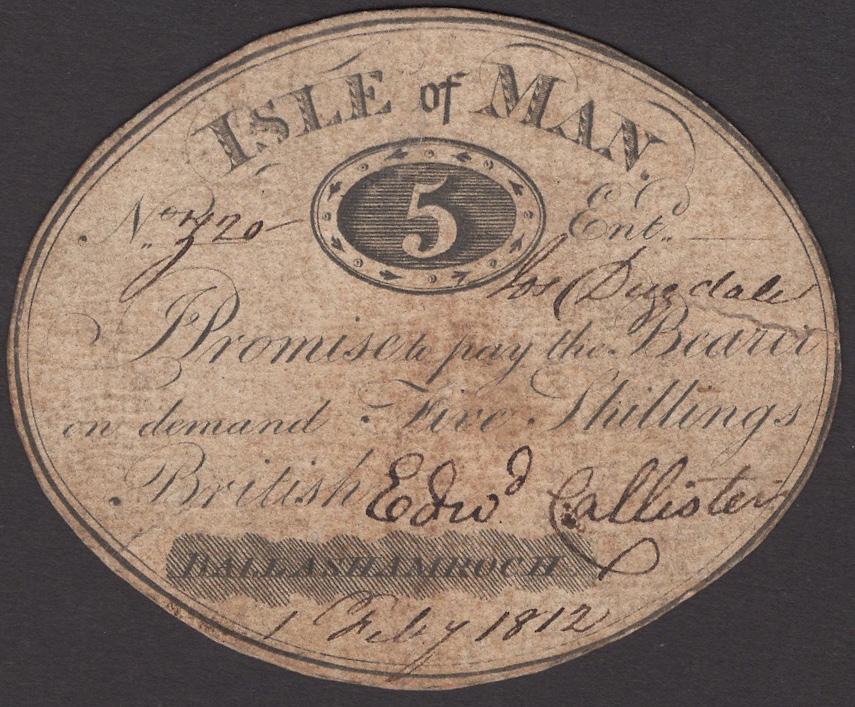 ISLE of MAN.
No. 5 Ent.
Jos Dugdale
I Promise to pay the Bearer
on demand Five Shillings
British Edwd Callister
BALLASHAMROCH
1 Feby 1812